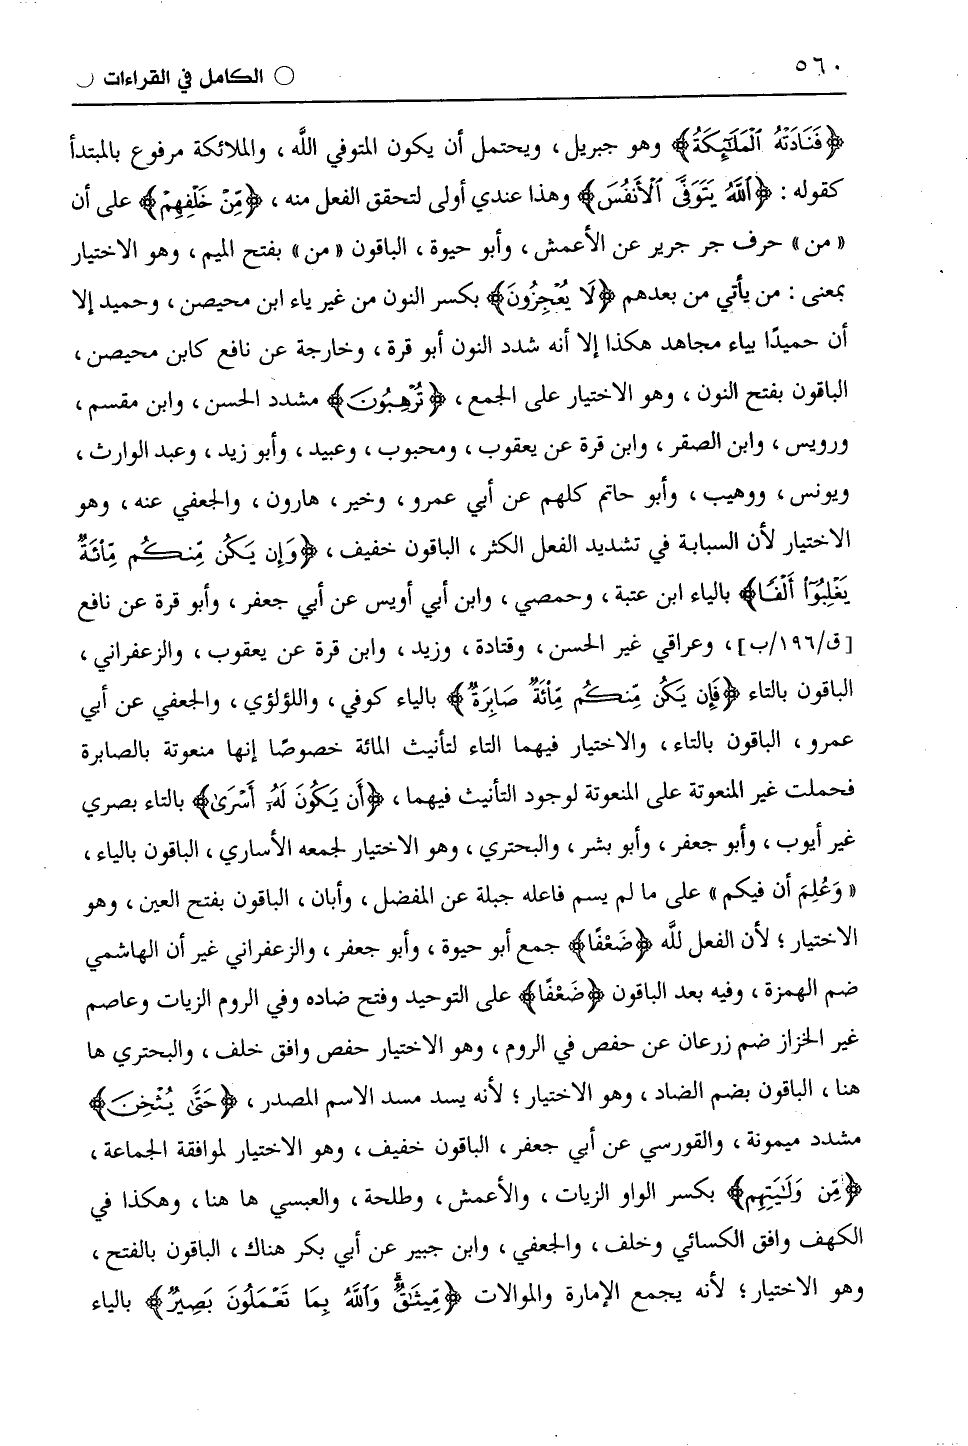 ٥٦٠
الكامل في القراءات
﴿فَنَادَتْهُ الْمَلَٰٓئِكَةُ﴾ وهو جبريل، ويحتمل أن يكون المتوفي اللَّه، والملائكة مرفوع بالمبتدأ
كقوله: ﴿ٱللَّهُ يَتَوَفَّى ٱلْأَنفُسَ﴾ وهذا عندي أولى لتحقق الفعل منه، ﴿مِّنْ خَلْفِهِمْ﴾ على أن
«من» حرف جر جرير عن الأعمش، وأبو حيوة، الباقون «من» بفتح الميم، وهو الاختيار
بمعنى: من يأتي من بعدهم ﴿لَا يُعْجِزُونَ﴾ بكسر النون من غير ياء ابن محيصن، وحميد إلا
أن حميدًا بياء مجاهد هكذا إلا أنه شدد النون أبو قرة، وخارجة عن نافع كابن محيصن،
الباقون بفتح النون، وهو الاختيار على الجمع، ﴿تُرْهِبُونَ﴾ مشدد الحسن، وابن مقسم،
ورويس، وابن الصقر، وابن قرة عن يعقوب، ومحبوب، وعبيد، وأبو زيد، وعبد الوارث،
ويونس، ووهيب، وأبو حاتم كلهم عن أبي عمرو، وخير، هارون، والجعفي عنه، وهو
الاختيار لأن السبابة في تشديد الفعل الكثر، الباقون خفيف، ﴿وَإِن يَكُن مِّنكُم مِّاْئَةٌ
يَغْلِبُوٓاْ أَلْفًا﴾ بالياء ابن عتبة، وحمصي، وابن أبي أويس عن أبي جعفر، وأبو قرة عن نافع
[ق/١٩٦/ب]، وعراقي غير الحسن، وقتادة، وزيد، وابن قرة عن يعقوب، والزعفراني،
الباقون بالتاء ﴿فَإِن يَكُن مِّنكُم مِّاْئَةٌ صَابِرَةٌ﴾ بالياء كوفي، واللؤلؤي، والجعفي عن أبي
عمرو، الباقون بالتاء، والاختيار فيهما التاء لتأنيث المائة خصوصًا إنها منعوتة بالصابرة
فحملت غير المنعوتة على المنعوتة لوجود التأنيث فيهما، ﴿أَن يَكُونَ لَهُۥٓ أَسْرَىٰ﴾ بالتاء بصري
غير أيوب، وأبو جعفر، وأبو بشر، والبحتري، وهو الاختيار لجمعه الأساري، الباقون بالياء،
«وَعُلِمَ أن فيكم» على ما لم يسم فاعله جبلة عن المفضل، وأبان، الباقون بفتح العين، وهو
الاختيار؛ لأن الفعل للَّه ﴿ضَعْفًا﴾ جمع أبو حيوة، وأبو جعفر، والزعفراني غير أن الهاشمي
ضم الهمزة، وفيه بعد الباقون ﴿ضَعْفًا﴾ على التوحيد وفتح ضاده وفي الروم الزيات وعاصم
غير الخزاز ضم زرعان عن حفص في الروم، وهو الاختيار حفص وافق خلف، والبحتري ها
هنا، الباقون بضم الضاد، وهو الاختيار؛ لأنه يسد مسد الاسم المصدر، ﴿حَتَّىٰ يُثْخِنَ﴾
مشدد ميمونة، والقورسي عن أبي جعفر، الباقون خفيف، وهو الاختيار لموافقة الجماعة،
﴿مِّن وَلَٰيَتِهِم﴾ بكسر الواو الزيات، والأعمش، وطلحة، والعبسي ها هنا، وهكذا في
الكهف وافق الكسائي وخلف، والجعفي، وابن جبير عن أبي بكر هناك، الباقون بالفتح،
وهو الاختيار؛ لأنه يجمع الإمارة والموالات ﴿مِّيثَٰقٌۗ وَٱللَّهُ بِمَا تَعْمَلُونَ بَصِيرٌ﴾ بالياء